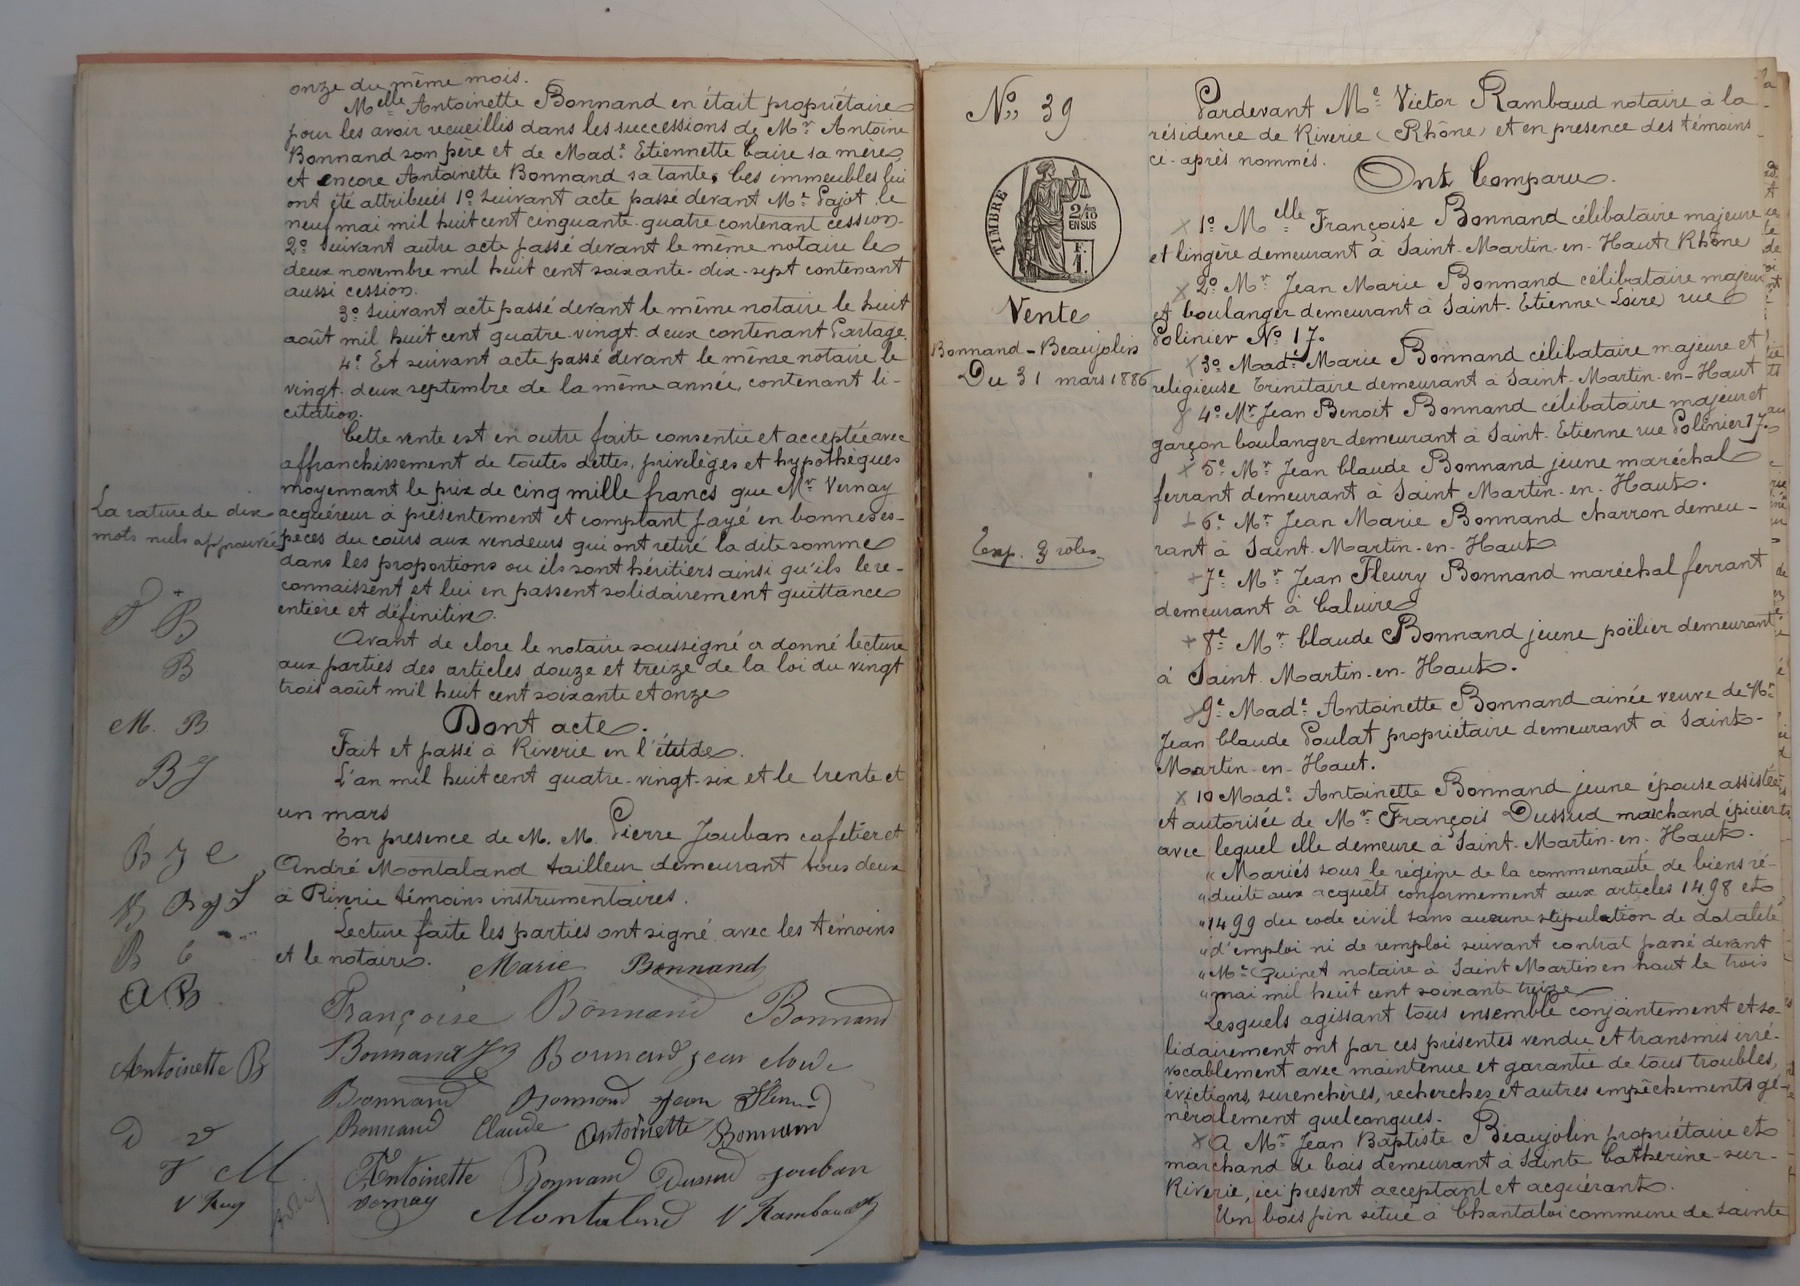 onze du même mois.
Melle Antoinette Bonnand en était propriétaire
pour les avoir recueillis dans les successions de Mr Antoine
Bonnand son père et de Made Etiennette Caire sa mère
et encore Antoinette Bonnand sa tante, Ces immeubles lui
ont été attribués 1o Suivant acte passé devant Mr Pajot le
neuf mai mil huit cent cinquante-quatre contenant cession-
2o Suivant autre acte passé devant le même notaire le
deux novembre mil huit cent soixante-dix-sept contenant
aussi cession.
3o Suivant acte passé devant le même notaire le huit
août mil huit cent quatre-vingt-deux contenant Partage.
4o Et suivant acte passé devant le même notaire le
vingt-deux septembre de la même année, contenant li-
citation.
Cette vente est en outre faite consentie et acceptée avec
affranchissement de toutes dettes, privilèges et hypothèques
moyennant le prix de cinq mille francs que Mr Vernay
acquéreur a présentement et comptant payé en bonnes es-
pèces du cours aux vendeurs qui ont retiré la dite somme
dans les proportions où ils sont héritiers ainsi qu'ils le re-
connaissent et lui en passent solidairement quittance
entière et définitive.
Avant de clore le notaire soussigné a donné lecture
aux parties des articles douze et treize de la loi du vingt
trois août mil huit cent soixante et onze
Dont acte.
Fait et passé à Riverie en l'étude.
L'an mil huit cent quatre-vingt-six et le trente et
un mars
En présence de M. M. Pierre Jouban cafetier et
André Montaland tailleur demeurant tous deux
à Riverie témoins instrumentaires.
Lecture faite les parties ont signé avec les témoins
et le notaire.
Marie Bonnand
Françoise Bonnand Bonnand
Bonnand JB Bonnand jean cloude
Bonnand Bonnand Jean Fleury
Bonnand Claude Antoinette Bonnand
Antoinette Bonnand Dussud Jouban
Vernay Montaland V Rambaud
La rature de dix
mots nuls approuvée
F B
B
M. B
B J
B J C
B
B C
A B
Antoinette B
D V
J M
V Ray
No 39
TIMBRE
2/10
EN SUS
F.
1.
Vente
Bonnand-Beaujolin
Du 31 mars 1886
Exp. 3 rôles
Pardevant Me Victor Rambaud notaire à la
résidence de Riverie (Rhône) et en présence des témoins
ci-après nommés.
Ont Comparu.
1o Melle Françoise Bonnand célibataire majeure
et lingère demeurant à Saint-Martin-en-Haut (Rhône)
2o Mr Jean Marie Bonnand célibataire majeur
et boulanger demeurant à Saint-Etienne (Loire) rue
Polinier No 17.
3o Made Marie Bonnand célibataire majeure et
religieuse Trinitaire demeurant à Saint-Martin-en-Haut
4o Mr Jean Benoit Bonnand célibataire majeur et
garçon boulanger demeurant à Saint-Etienne rue Polinier 17.
5e Mr Jean Claude Bonnand jeune maréchal
ferrant demeurant à Saint Martin-en-Haut.
6e Mr Jean Marie Bonnand charron demeu-
rant à Saint-Martin-en-Haut
7e Mr Jean Fleury Bonnand maréchal ferrant
demeurant à Caluire
8e Mr Claude Bonnand jeune poëlier demeurant
à Saint Martin-en-Haut.
9e Made Antoinette Bonnand ainée veuve de Mr
Jean Claude Poulat propriétaire demeurant à Saint-
Martin-en-Haut.
10 Made Antoinette Bonnand jeune épouse assistée
et autorisée de Mr François Dussud marchand épicier
avec lequel elle demeure à Saint-Martin-en-Haut.
"Mariés sous le régime de la communauté de biens ré-
"duite aux acquêts conformement aux articles 1498 et
"1499 du code civil sans aucune stipulation de dotalité
"d'emploi ni de remploi suivant contrat passé devant
"Me Guinet notaire à Saint Martin en haut le trois
"mai mil huit cent soixante treize
Lesquels agissant tous ensemble conjointement et so-
lidairement ont par ces présentes vendu et transmis irré-
vocablement avec maintenue et garantie de tous troubles,
évictions, surenchères, recherches et autres empêchements gé-
néralement quelconques.
A Mr Jean Baptiste Beaujolin propriétaire et
marchand de bois demeurant à Sainte Catherine-sur-
Riverie, ici présent acceptant et acquérant.
Un bois pin situé à Chantaloi commune de sainte